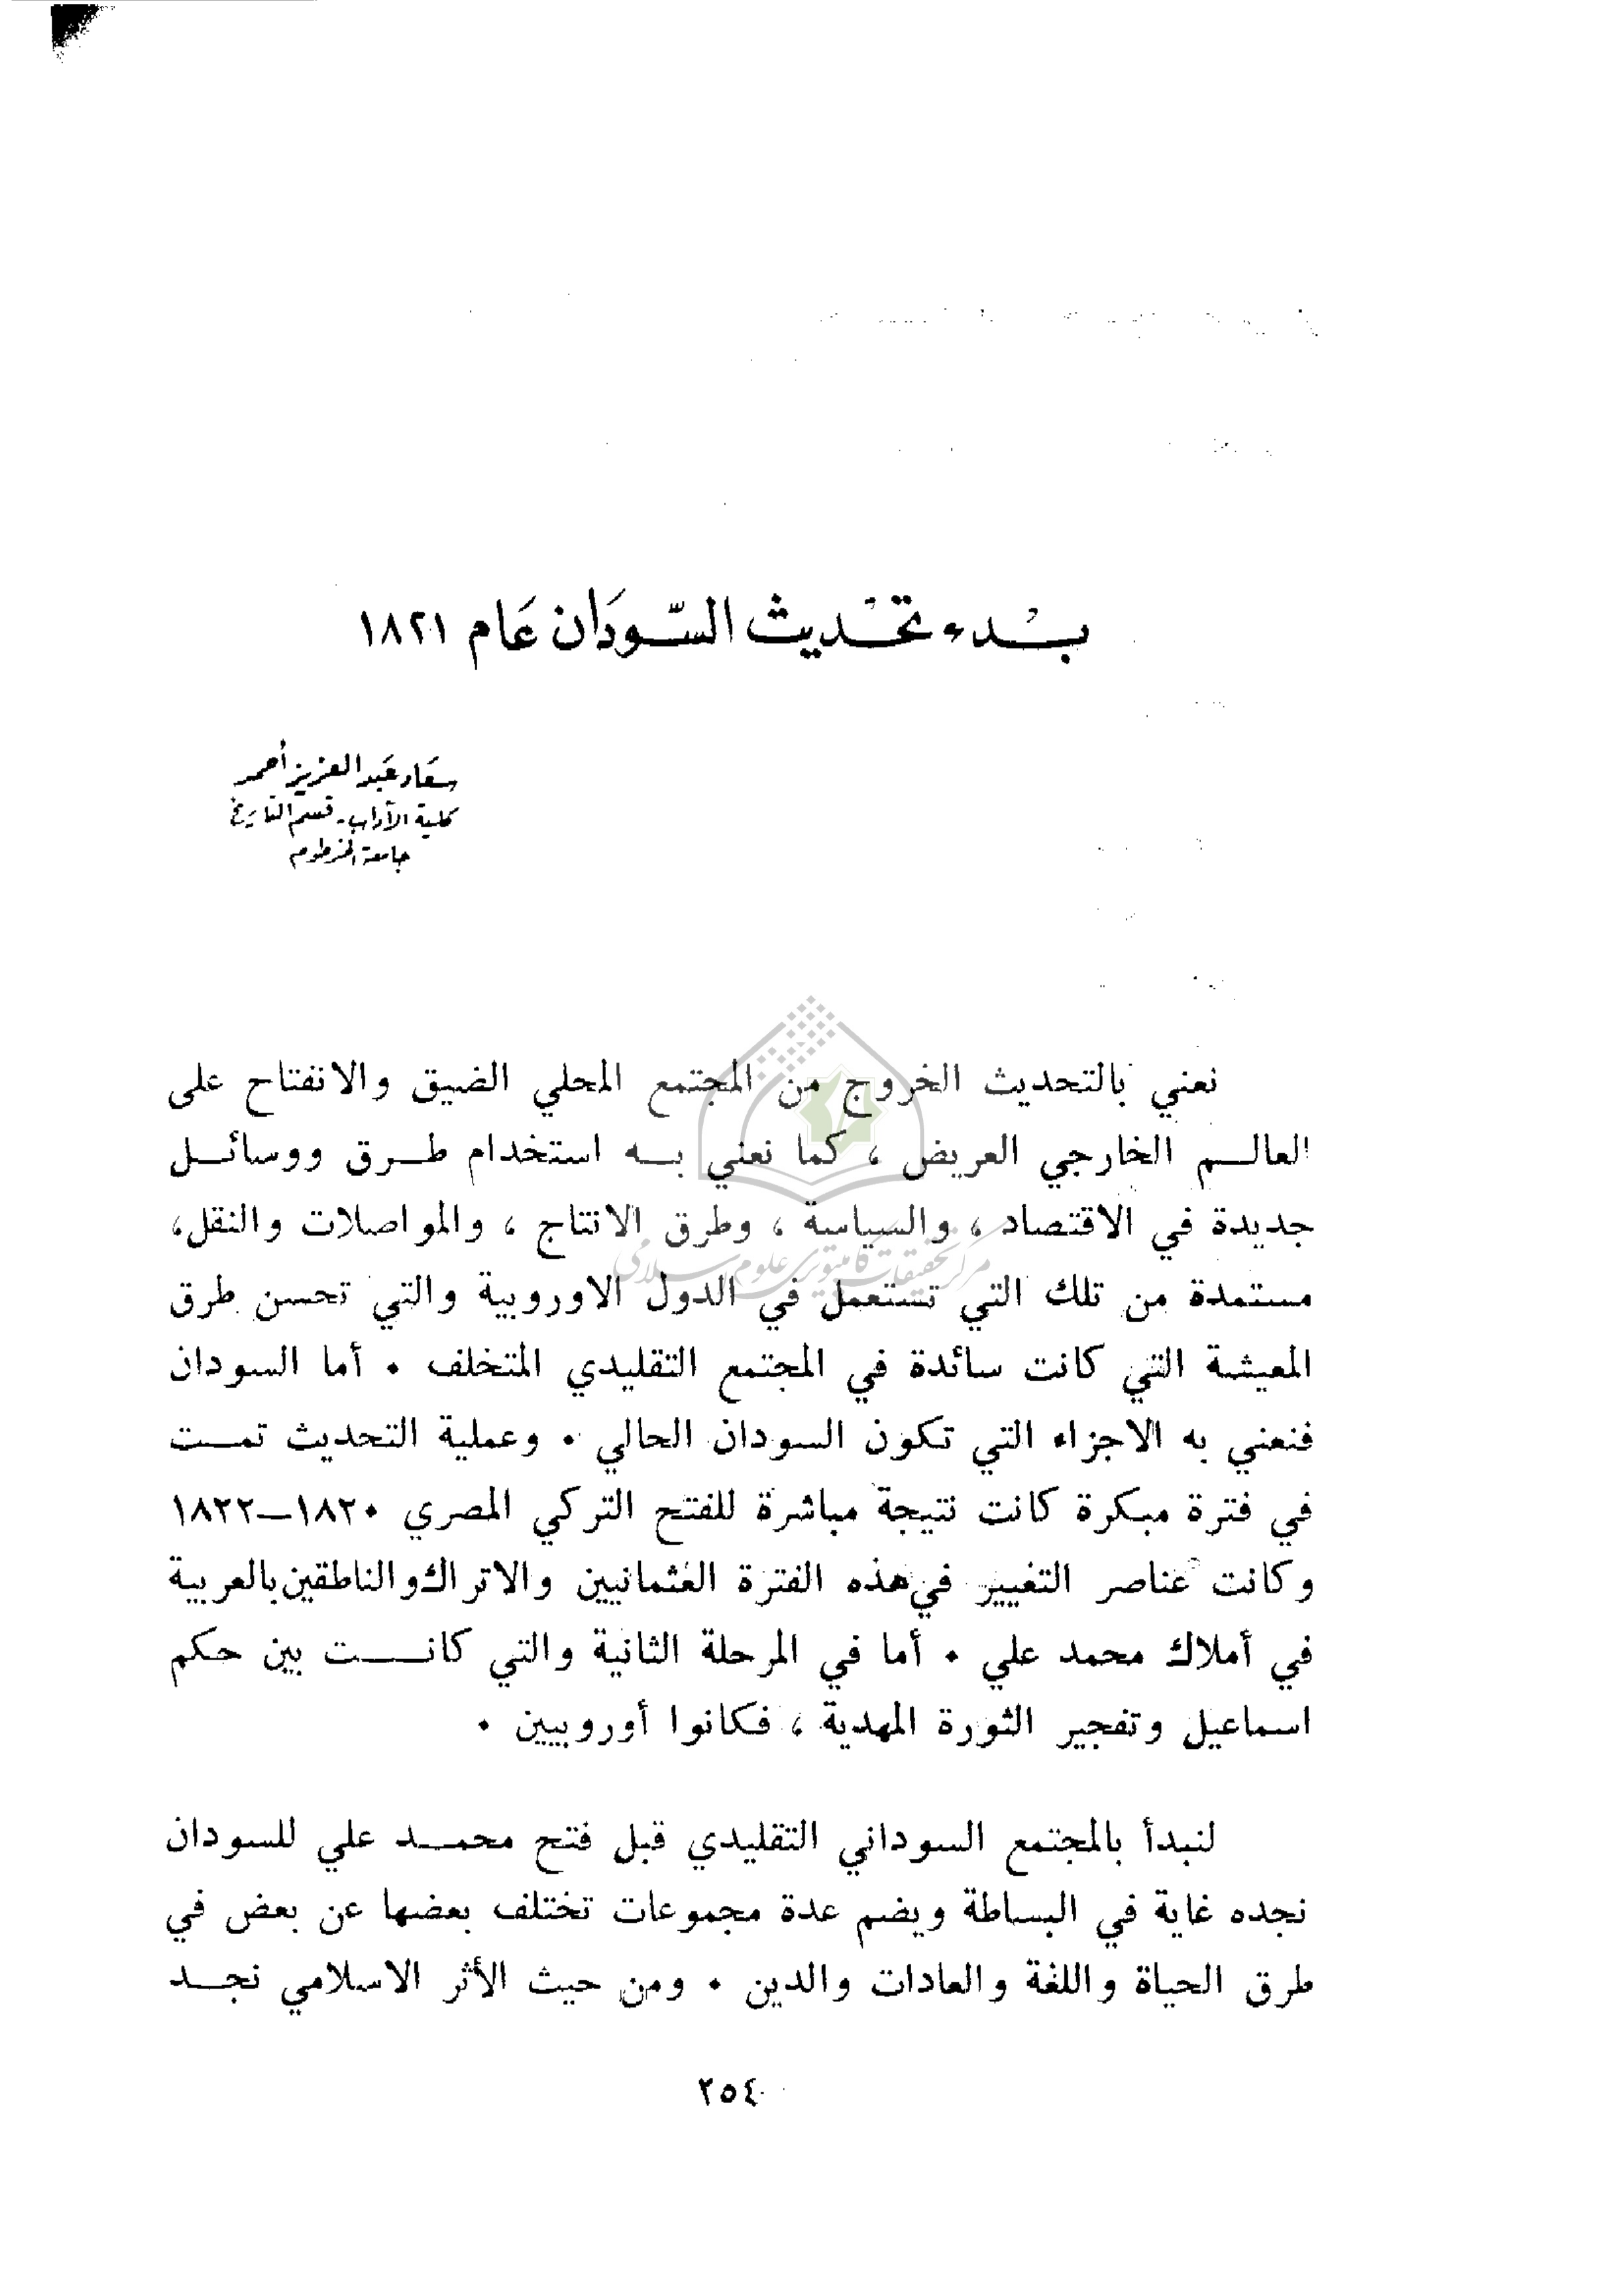 بدء تحديث السّودَان عَام ١٨٢١
سعَاد عَبد العزيز أحمد
كلية الآداب - قسم التاريخ
جامعة الخرطوم
نعني بالتحديث الخروج من المجتمع المحلي الضيق والانفتاح على
العالم الخارجي العريض ، كما نعني به استخدام طرق ووسائل
جديدة في الاقتصاد ، والسياسة ، وطرق الانتاج ، والمواصلات والنقل،
مستمدة من تلك التي تستعمل في الدول الاوروبية والتي تحسن طرق
المعيشة التي كانت سائدة في المجتمع التقليدي المتخلف ٠ أما السودان
فنعني به الاجزاء التي تكون السودان الحالي ٠ وعملية التحديث تمت
في فترة مبكرة كانت نتيجة مباشرة للفتح التركي المصري ١٨٢٠–١٨٢٢
وكانت عناصر التغيير في هذه الفترة العثمانيين والاتراك والناطقين بالعربية
في أملاك محمد علي ٠ أما في المرحلة الثانية والتي كانت بين حكم
اسماعيل وتفجير الثورة المهدية ، فكانوا أوروبيين ٠
لنبدأ بالمجتمع السوداني التقليدي قبل فتح محمد علي للسودان
نجده غاية في البساطة ويضم عدة مجموعات تختلف بعضها عن بعض في
طرق الحياة واللغة والعادات والدين ٠ ومن حيث الأثر الاسلامي نجد
مركز تحقیقات کامپیوتری علوم اسلامی
٢٥٤